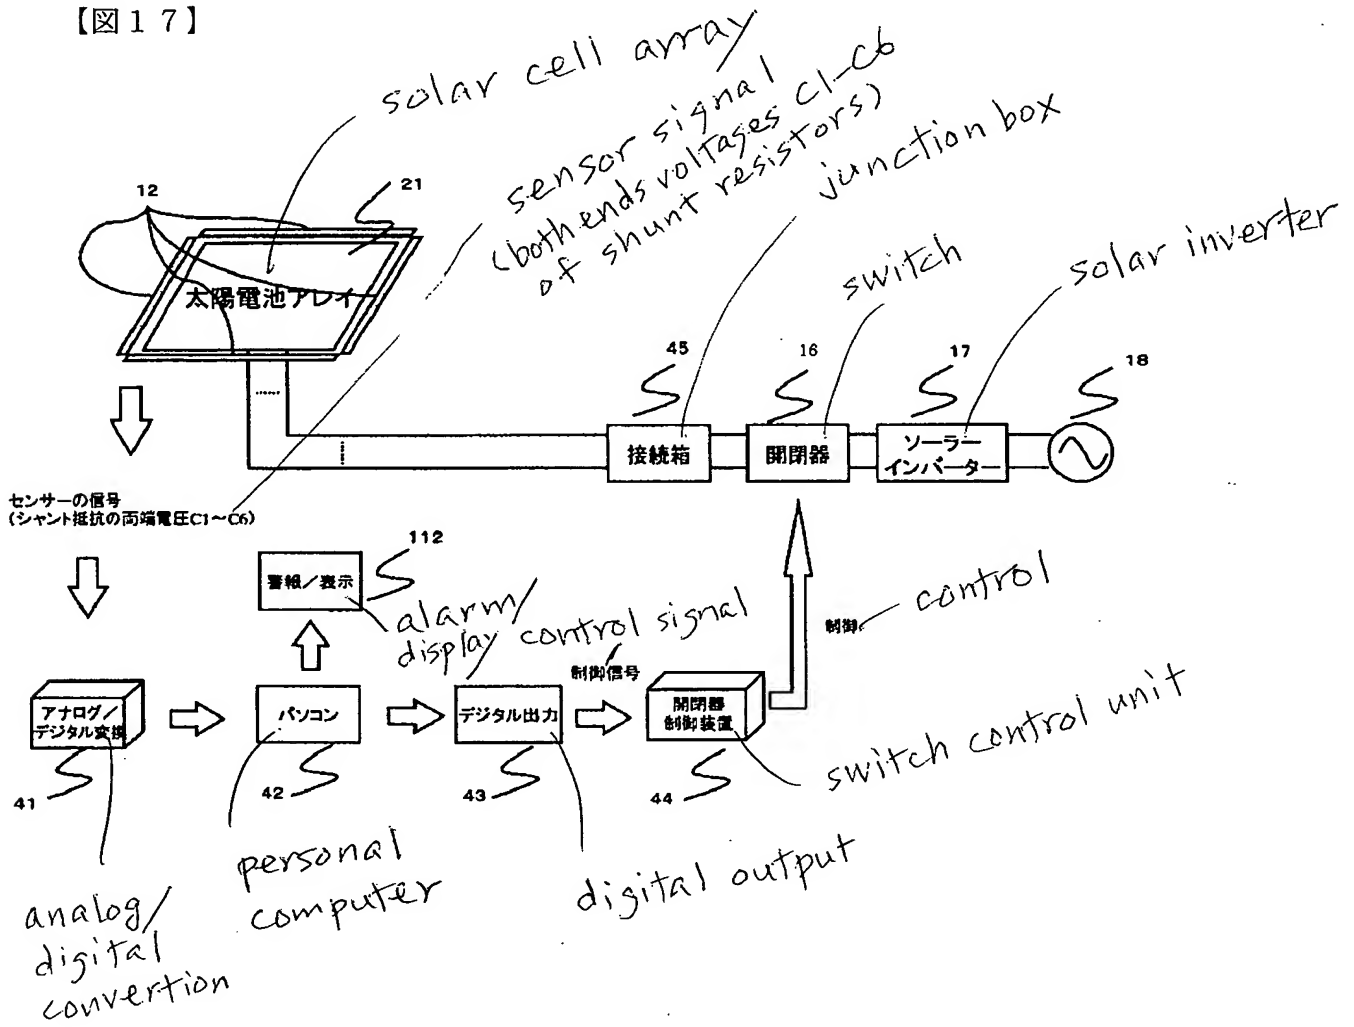 【図１７】
solar cell array
sensor signal
(both ends voltages C1-C6
of shunt resistors)
junction box
switch
solar inverter
12
21
太陽電池アレイ
45
16
17
18
接続箱
開閉器
ソーラー
インバーター
センサーの信号
(シャント抵抗の両端電圧C1～C6)
112
警報／表示
alarm/
display
control signal
制御信号
制御
control
アナログ／
デジタル変換
パソコン
デジタル出力
開閉器
制御装置
switch control unit
41
42
43
44
analog/
digital
convertion
personal
computer
digital output